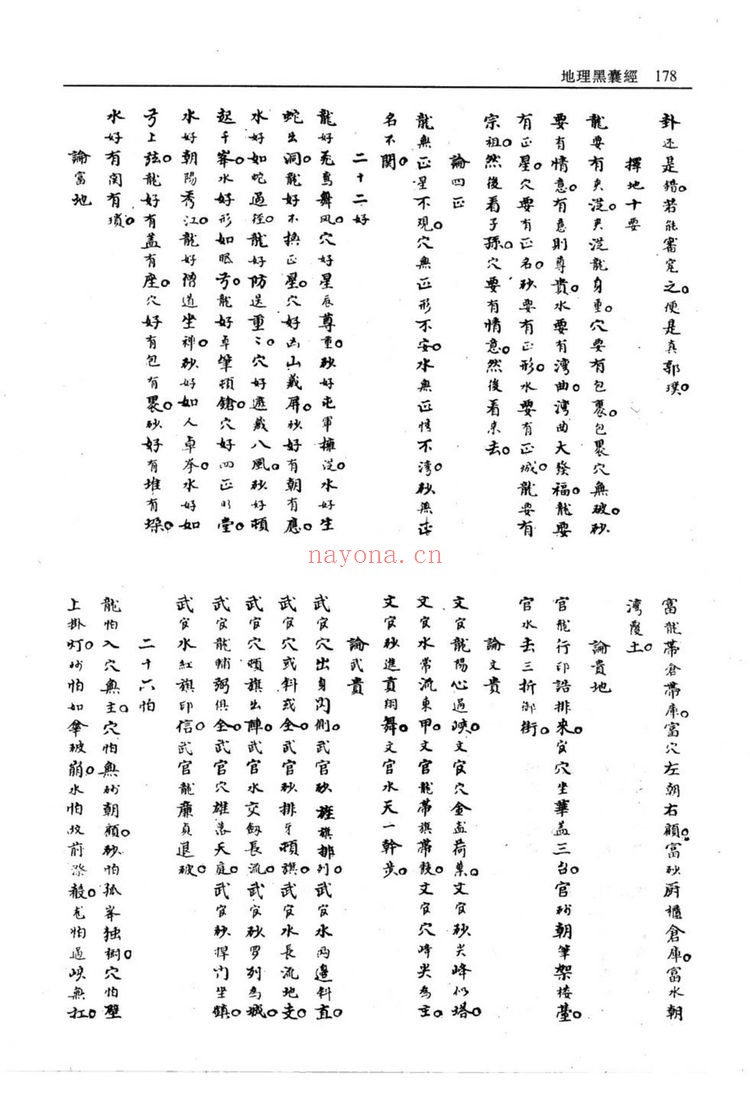 地理黑囊經 178
卦还是錯。若能審定之。便是真郭璞。
擇地十要
龍要有夹送。夹送龍身重。穴要有包裹。包裹穴無破。砂
要有情意。有意則尊貴。水要有湾曲。湾曲大發福。龍要
有正星。穴要有正名。砂要有正形。水要有正城。龍要有
宗祖。然後看子孫。穴要有情意。然後看來去。
論四正
龍無正星不現。穴無正形不安。水無正情不湾。砂無正
名不関。
二十二好
龍好飛鳥舞凤。穴好星辰尊重。砂好屯軍擁從。水好生
蛇出洞。龍好不換正星。穴好凶山藏屏。砂好有朝有應。
水好如蛇過徑。龍好防送重〻。穴好遮藏八風。砂好頓
起千峯。水好形如眠弓。龍好卓筆頓鎗。穴好四正明堂。
水好朝陽秀江。龍好僧道坐禅。砂好如人卓拳。水好如
弓上弦。龍好有蓋有座。穴好有包有裹。砂好有堆有垜。
水好有関有鎖。
論富地
富龍帶倉帶庫。富穴左朝右顧。富砂厨櫃倉庫。富水朝
湾覆土。
論貴地
官龍行印誥排來。官穴坐華蓋三台。官砂朝筆架楼臺。
官水去三折御街。
論文貴
文官龍陽心過峽。文官穴金盃荷葉。文官砂尖峰似塔。
文官水常流東甲。文官龍帶旗帶鼓。文官穴峰尖為主。
文官砂進貢翔舞。文官水天一幹步。
論武貴
武官穴出身閃側。武官砂旌旗排列。武官水两邊斜直。
武官穴或斜或全。武官砂排牙頓旗。武官水長流地支。
武官穴頓旗出陣。武官水交劔長流。武官砂罗列為城。
武官龍輔弼俱全。武官穴雄落天庭。武官砂捍门坐鎮。
武官水紅旗印信。武官龍廉貞退破。
二十六怕
龍怕入穴無主。穴怕無砂朝顧。砂怕孤峯独樹。穴怕壁
上掛灯。砂怕如傘破崩。水怕坟前深殺。龙怕過峽無扛。
nayona.cn